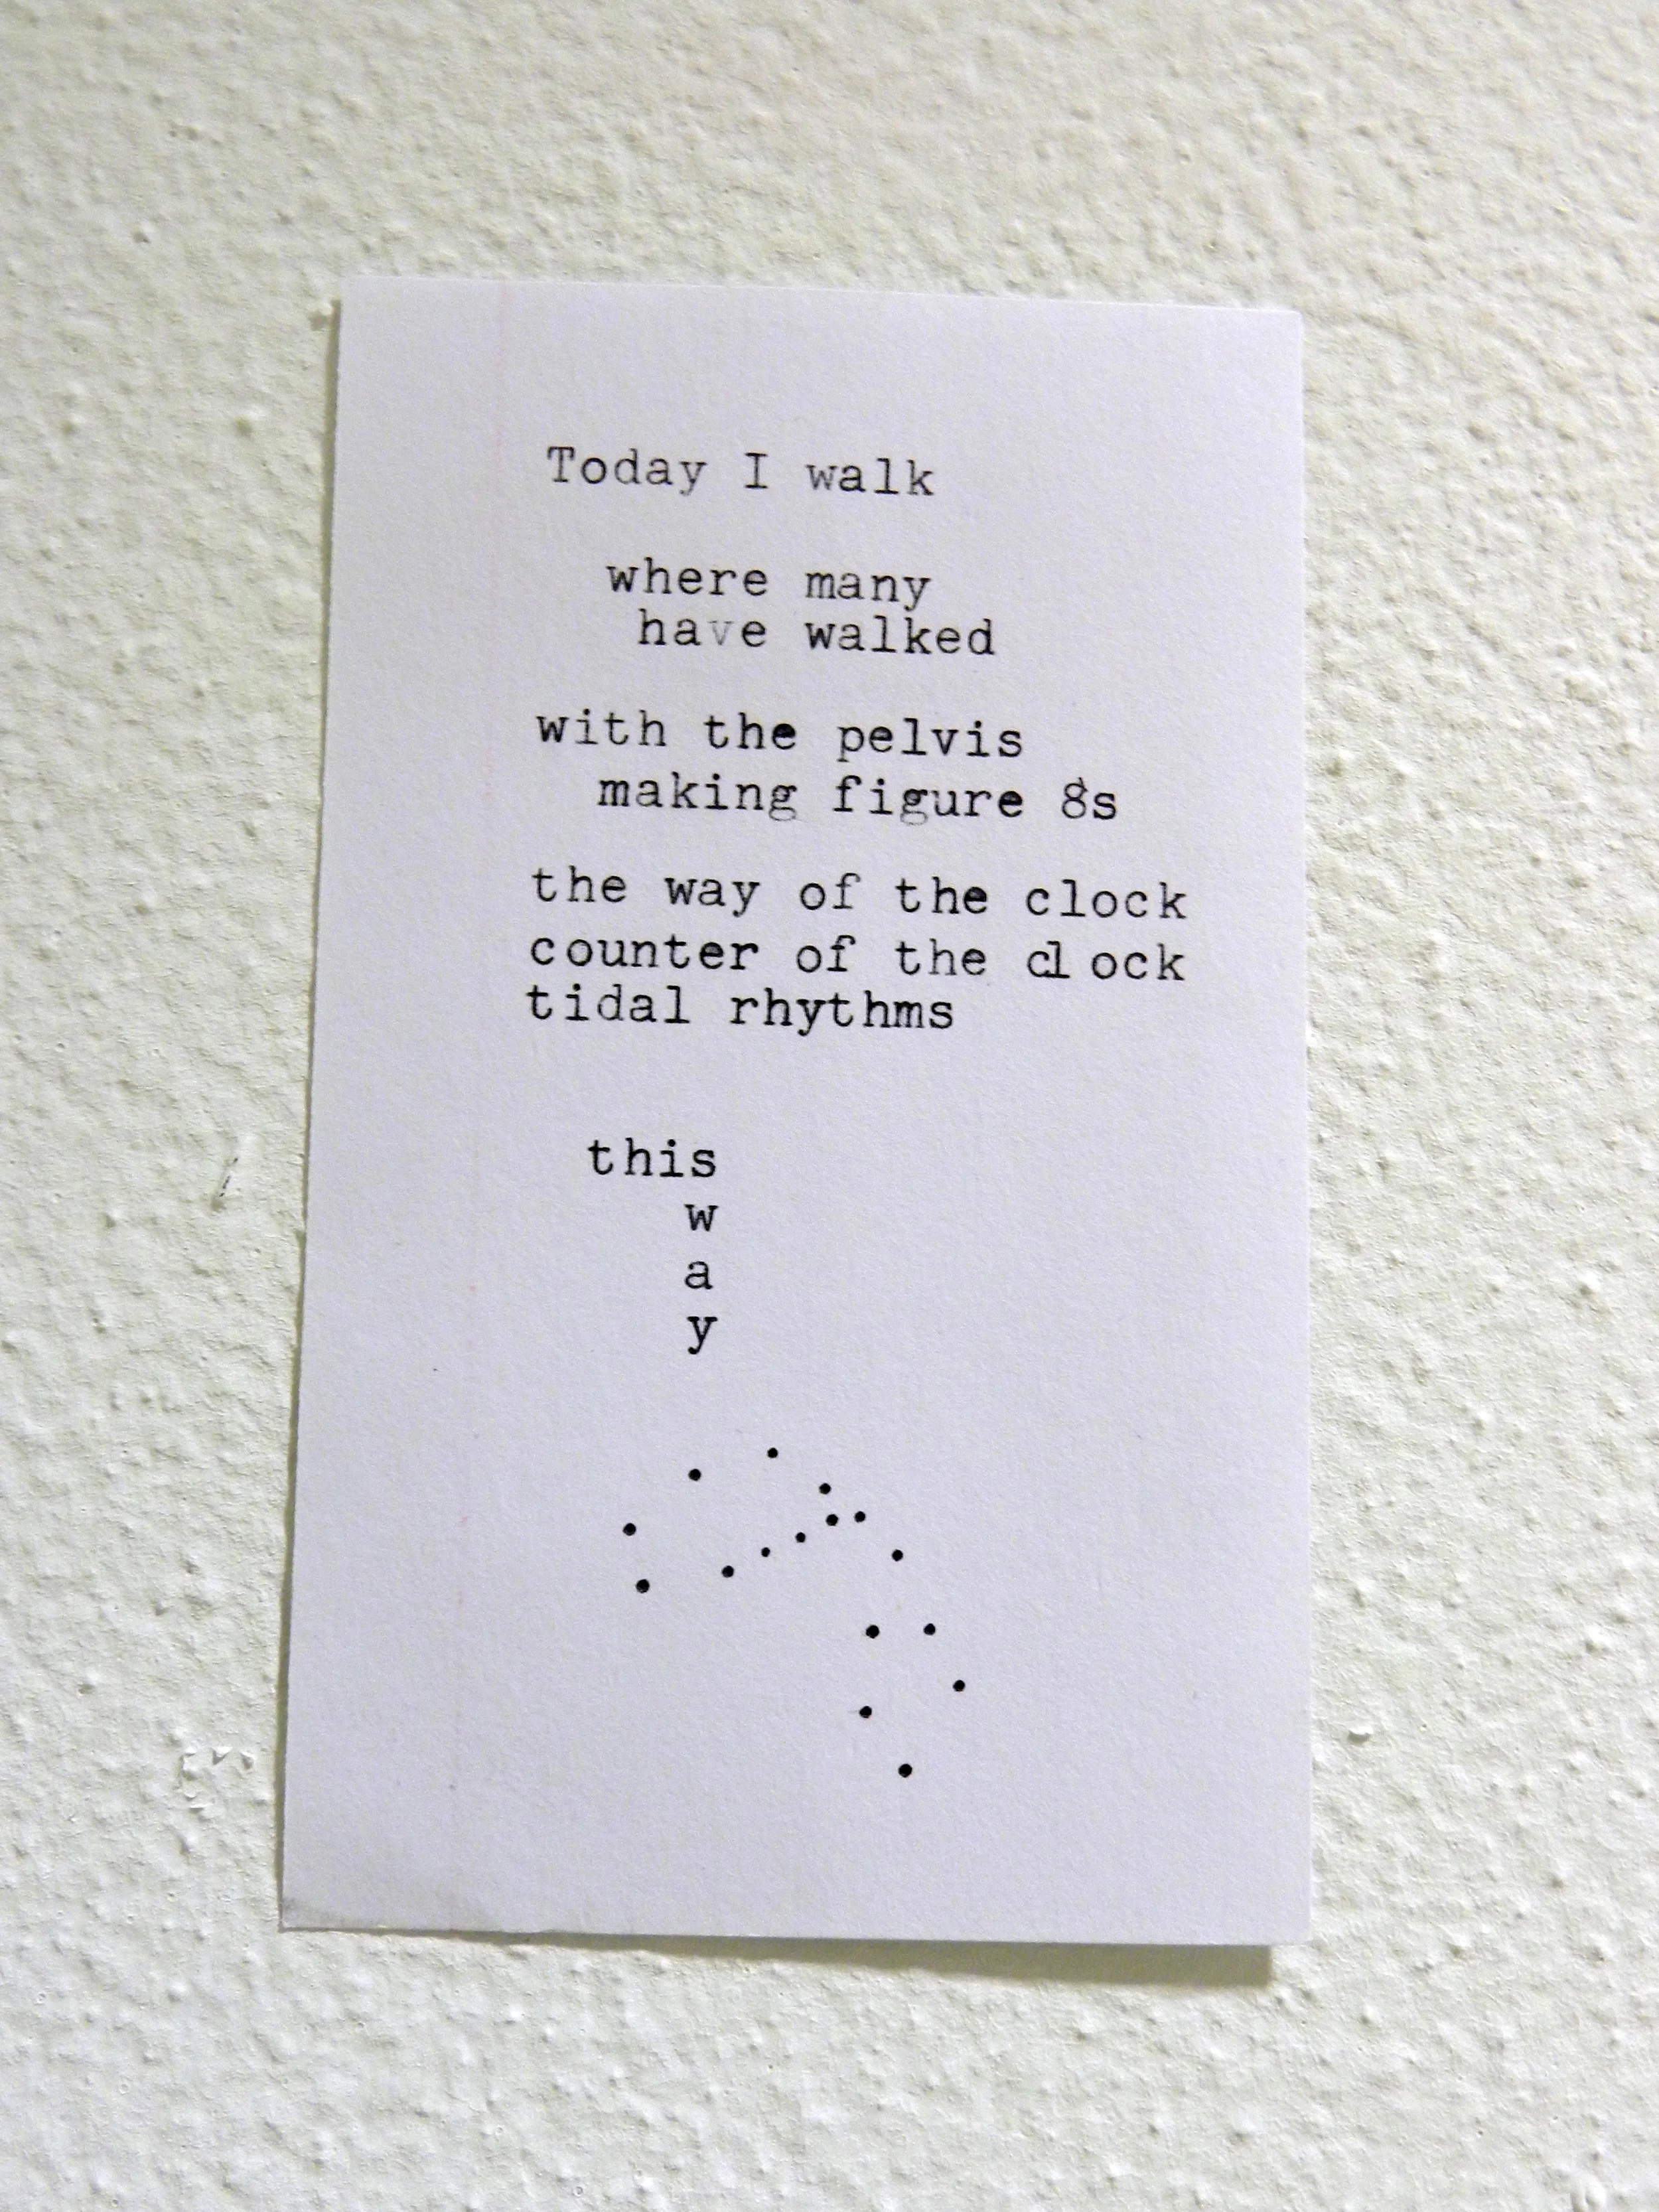 Today I walk
where many
have walked
with the pelvis
making figure 8s
the way of the clock
counter of the clock
tidal rhythms
this
w
a
y